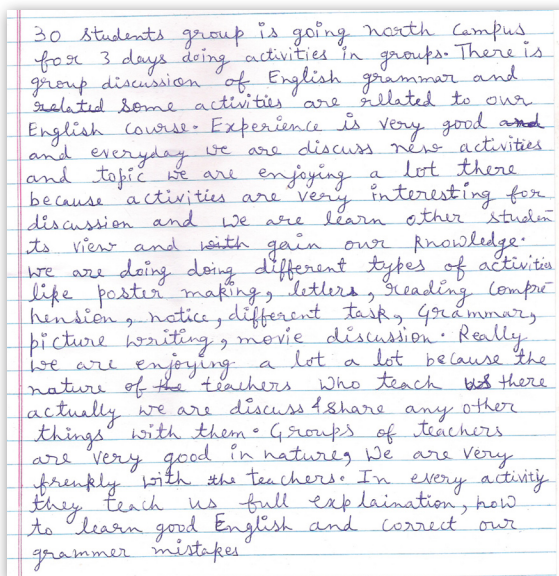 30 students group is going north campus
for 3 days doing activities in groups. There is
group discussion of English grammar and
related some activities are related to our
English course. Experience is very good and
and everyday we are discuss new activities
and topic we are enjoying a lot there
because activities are very interesting for
discussion and we are learn other studen
ts view and with gain our knowledge.
we are doing doing different types of activities
like poster making, letters, reading compre
hension, notice, different task, Grammar,
picture writing, movie discussion. Really
we are enjoying a lot a lot because the
nature of the teachers who teach us there
actually we are discuss & share any other
things with them. Groups of teachers
are very good in nature, we are very
frenkly with the teachers. In every activity
they teach us full explaination, how
to learn good English and correct our
grammer mistakes